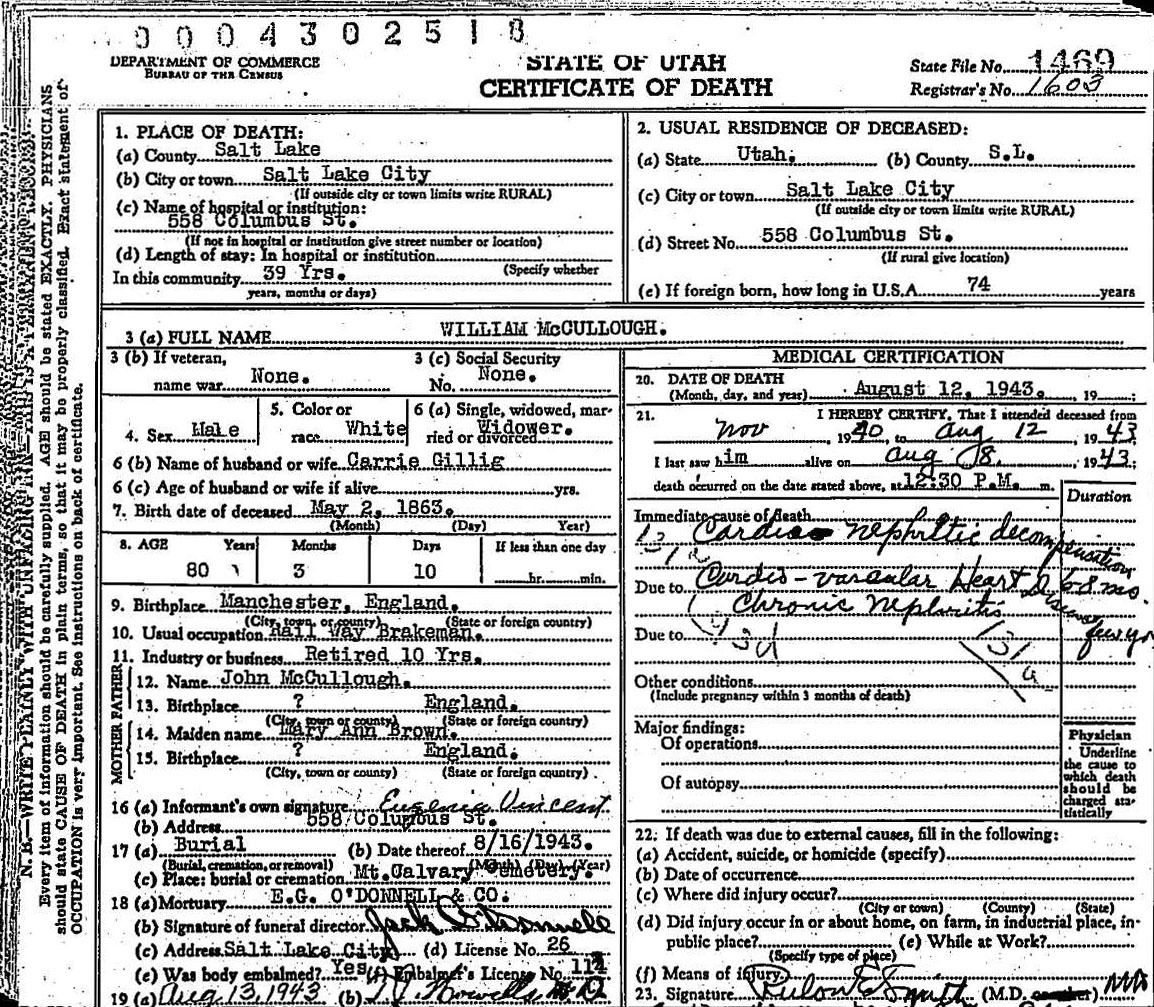 0 0 0 4 3 0 2 5 1 8
DEPARTMENT OF COMMERCE
BUREAU OF THE CENSUS
STATE OF UTAH
CERTIFICATE OF DEATH
State File No. 1469
Registrar's No. 1603
N. B.—WRITE PLAINLY WITH UNFADING INK—THIS IS A PERMANENT RECORD.
Every item of information should be carefully supplied. AGE should be stated EXACTLY. PHYSICIANS
should state CAUSE OF DEATH in plain terms, so that it may be properly classified. Exact statement of
OCCUPATION is very important. See instructions on back of certificate.
1. PLACE OF DEATH:
(a) County Salt Lake
(b) City or town Salt Lake City
(If outside city or town limits write RURAL)
(c) Name of hospital or institution:
558 Columbus St.
(If not in hospital or institution give street number or location)
(d) Length of stay: In hospital or institution
(Specify whether
In this community 39 Yrs.
years, months or days)
2. USUAL RESIDENCE OF DECEASED:
(a) State Utah. (b) County S.L.
(c) City or town Salt Lake City
(If outside city or town limits write RURAL)
(d) Street No. 558 Columbus St.
(If rural give location)
(e) If foreign born, how long in U.S.A. 74 years
3 (a) FULL NAME WILLIAM McCULLOUGH.
3 (b) If veteran,
name war None.
3 (c) Social Security
No. None.
4. Sex Male
5. Color or
race White
6 (a) Single, widowed, mar-
ried or divorced Widower.
6 (b) Name of husband or wife Carrie Gillig
6 (c) Age of husband or wife if alive yrs.
7. Birth date of deceased May 2, 1863.
(Month) (Day) Year)
8. AGE Years Months Days If less than one day
80 3 10 hr. min.
9. Birthplace Manchester, England.
(City, town, or county) (State or foreign country)
10. Usual occupation Rail Way Brakeman.
11. Industry or business Retired 10 Yrs.
FATHER
12. Name John McCullough.
13. Birthplace ? England.
(City, town or county) (State or foreign country)
MOTHER
14. Maiden name Mary Ann Brown.
15. Birthplace ? England.
(City, town or county) (State or foreign country)
16 (a) Informant's own signature Eugenia Vincent
(b) Address 558 Columbus St.
17 (a) Burial (b) Date thereof 8/16/1943.
(Burial, cremation, or removal) (Month) (Day) (Year)
(c) Place: burial or cremation Mt.Calvary Cemetery.
18 (a) Mortuary E.G. O'DONNELL & CO.
(b) Signature of funeral director Jack O'Donnell
(c) Address Salt Lake City (d) License No. 26
(e) Was body embalmed? Yes (f) Embalmer's License No.
19 (a) Aug 13, 1943 (b)
MEDICAL CERTIFICATION
20. DATE OF DEATH
(Month, day, and year) August 12, 1943. , 19 ;
21. I HEREBY CERTIFY, That I attended deceased from
Nov , 1940, to Aug 12 , 1943
I last saw him alive on Aug 8. , 1943;
death occurred on the date stated above, at 12:30 P.M. m.
Duration
Immediate cause of death
Cardiac nephritic decompensation
Due to Cardio-vascular Heart Disease 6-8 mo.
Chronic Nephritis
few yr
Due to
131a
Other conditions
(Include pregnancy within 3 months of death)
Major findings:
Of operations
Of autopsy
Physician
Underline
the cause to
which death
should be
charged sta-
tistically
22. If death was due to external causes, fill in the following:
(a) Accident, suicide, or homicide (specify)
(b) Date of occurrence
(c) Where did injury occur?
(City or town) (County) (State)
(d) Did injury occur in or about home, on farm, in industrial place, in-
public place? (e) While at Work?
(Specify type of place)
(f) Means of injury
23. Signature Smith (M.D. or other) MD